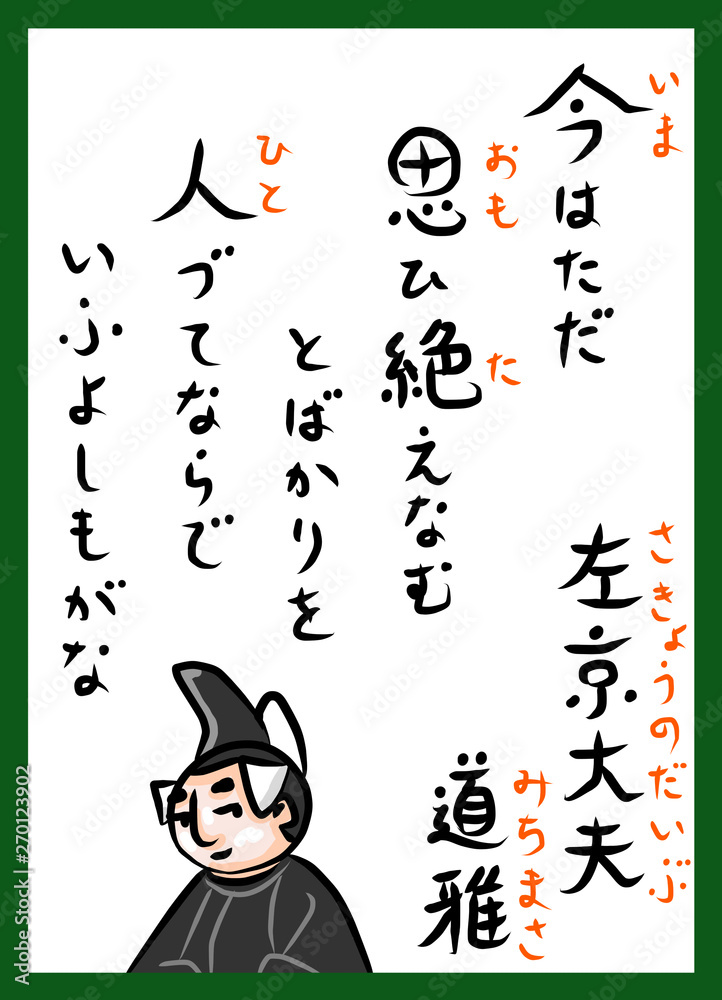 今はただ
いま
思ひ絶えなむ
おも
た
とばかりを
人づてならで
ひと
いふよしもがな
左京大夫
さきょうのだいぶ
道雅
みちまさ
Adobe Stock
Adobe Stock | #270123902